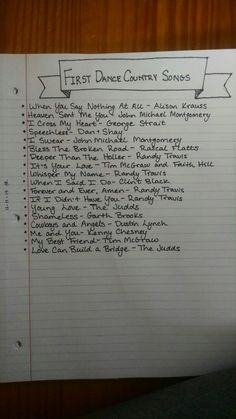 First Dance Country Songs
• When You Say Nothing At All - Alison Krauss
• Heaven Sent Me You - John Michael Montgomery
• I Cross My Heart - George Strait
• Speechless - Dan + Shay
• I Swear - John Michael Montgomery
• Bless The Broken Road - Rascal Flatts
• Deeper Than The Holler - Randy Travis
• It's Your Love - Tim McGraw and Faith Hill
• Whisper My Name - Randy Travis
• When I Said I Do - Clint Black
• Forever and Ever, Amen - Randy Travis
• If I Didn't Have You - Randy Travis
• Young Love - The Judds
• Shameless - Garth Brooks
• Cowboys and Angels - Dustin Lynch
• Me and You - Kenny Chesney
• My Best Friend - Tim McGraw
• Love Can Build a Bridge - The Judds